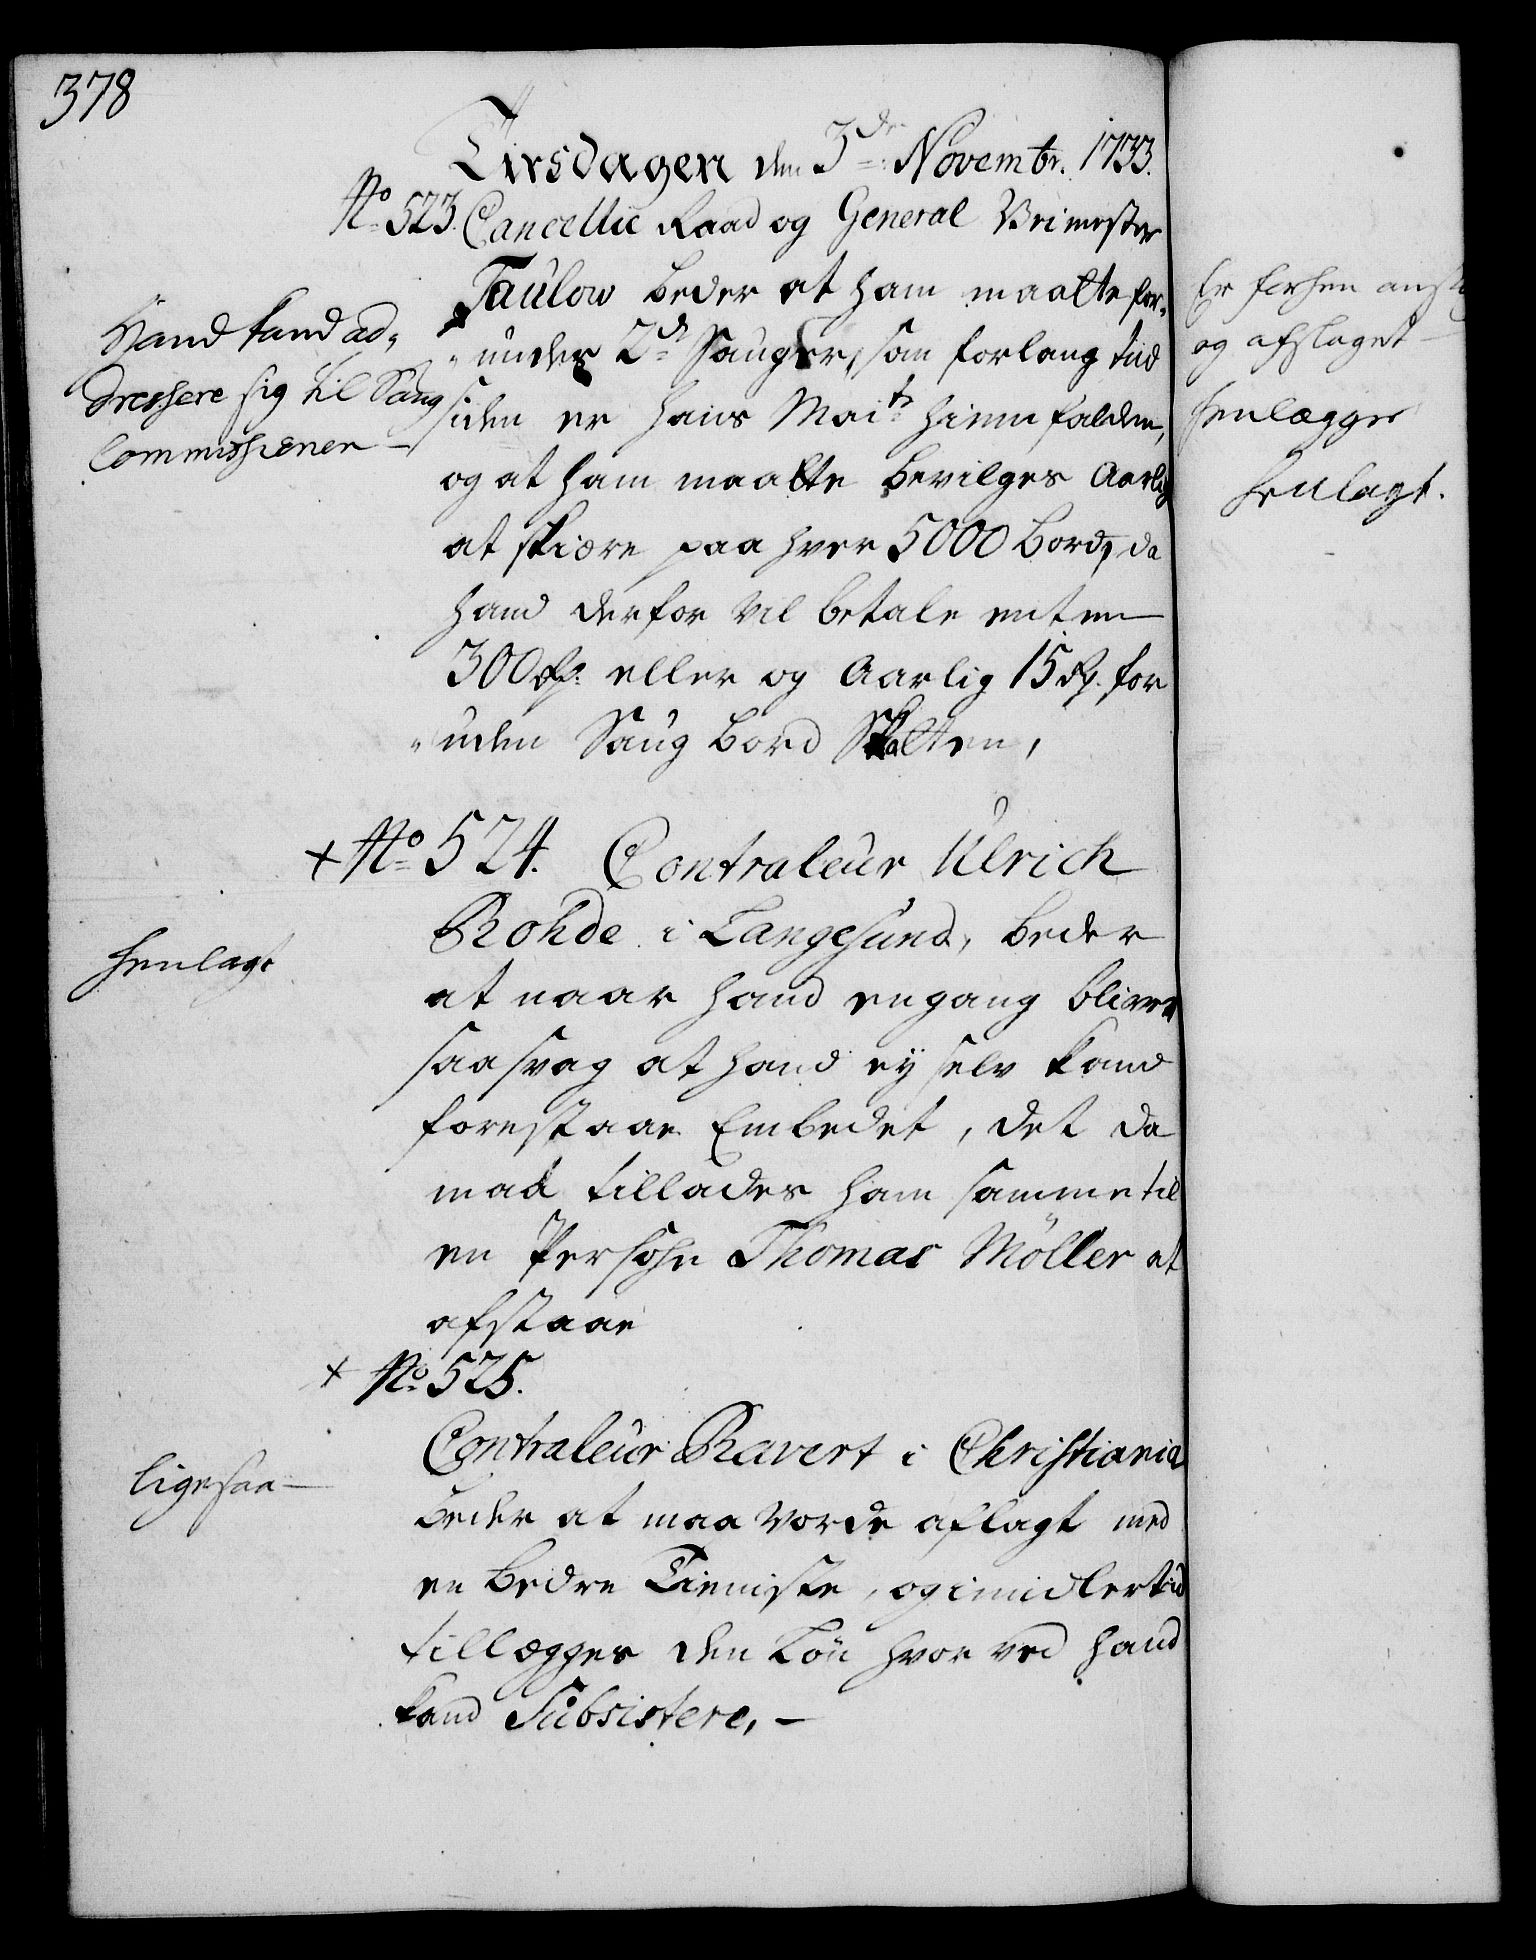 378
Tirsdagen den 3de Novembr. 1733.
No 523. Cancellie Raad og General Veimester
Taulow beder at ham maatte for„
„undes 2de Sauger, som for lang tiid
siden er hans Maits hiemfalden,
og at ham maatte bevilges Aarlig
at skiære paa hver 5000 bord, da
hand derfor vil betale enten
300 Rd. eller og Aarlig 15 Rd. for
„uden Saug bord Skatten,
Hand kand ad„
dressere sig til Saug
Commissionen —
+ No 524. Contraleur Ulrich
Rohde i Langesund, beder
at naar hand engang bliver
saa svag at hand ey selv kand
forestaae Embedet, det da
maa tillades ham samme til
en Persohn Thomas Möller at
afstaae
henlagt
+ No 525.
Contraleur Ravert i Christiania
beder at maa vorde aflagt med
en bedre Tieniste, og imidlertid
tillægges den Løn hvorved hand
kand Subsistere, —
ligesaa —
Er forhen
og afslaget —
henlægges
henlagt.